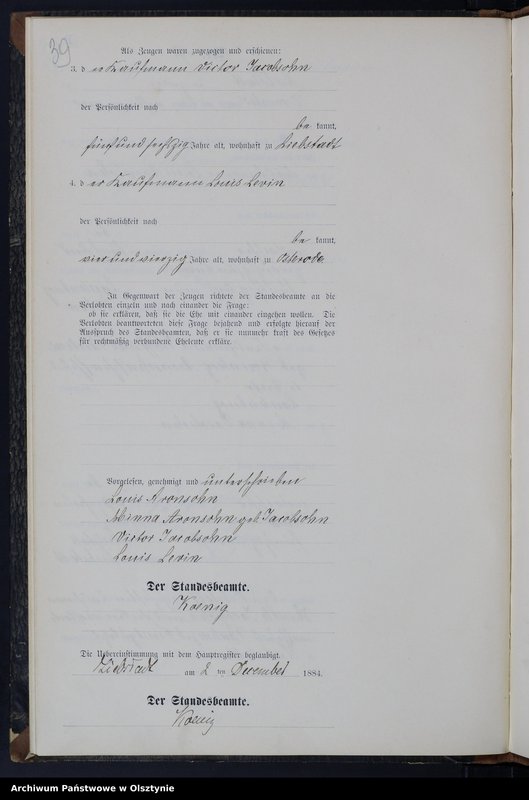 39
Als Zeugen waren zugezogen und erschienen:
3. d er Kaufmann Victor Jacobsohn
der Persönlichkeit nach
be kannt,
fünf und sechszig Jahre alt, wohnhaft zu Liebstadt
4. d er Kaufmann Louis Levin
der Persönlichkeit nach
be kannt,
vier und vierzig Jahre alt, wohnhaft zu Osterode
In Gegenwart der Zeugen richtete der Standesbeamte an die
Verlobten einzeln und nach einander die Frage:
ob sie erklären, daß sie die Ehe mit einander eingehen wollen. Die
Verlobten beantworteten diese Frage bejahend und erfolgte hierauf der
Ausspruch des Standesbeamten, daß er sie nunmehr kraft des Gesetzes
für rechtmäßig verbundene Eheleute erkläre.
Vorgelesen, genehmigt und unterschrieben
Louis Aronsohn
Minna Aronsohn geb. Jacobsohn
Victor Jacobsohn
Louis Levin
Der Standesbeamte.
Koenig
Die Uebereinstimmung mit dem Hauptregister beglaubigt.
Liebstadt am 2 ten December 1884.
Der Standesbeamte.
Koenig
Archiwum Państwowe w Olsztynie